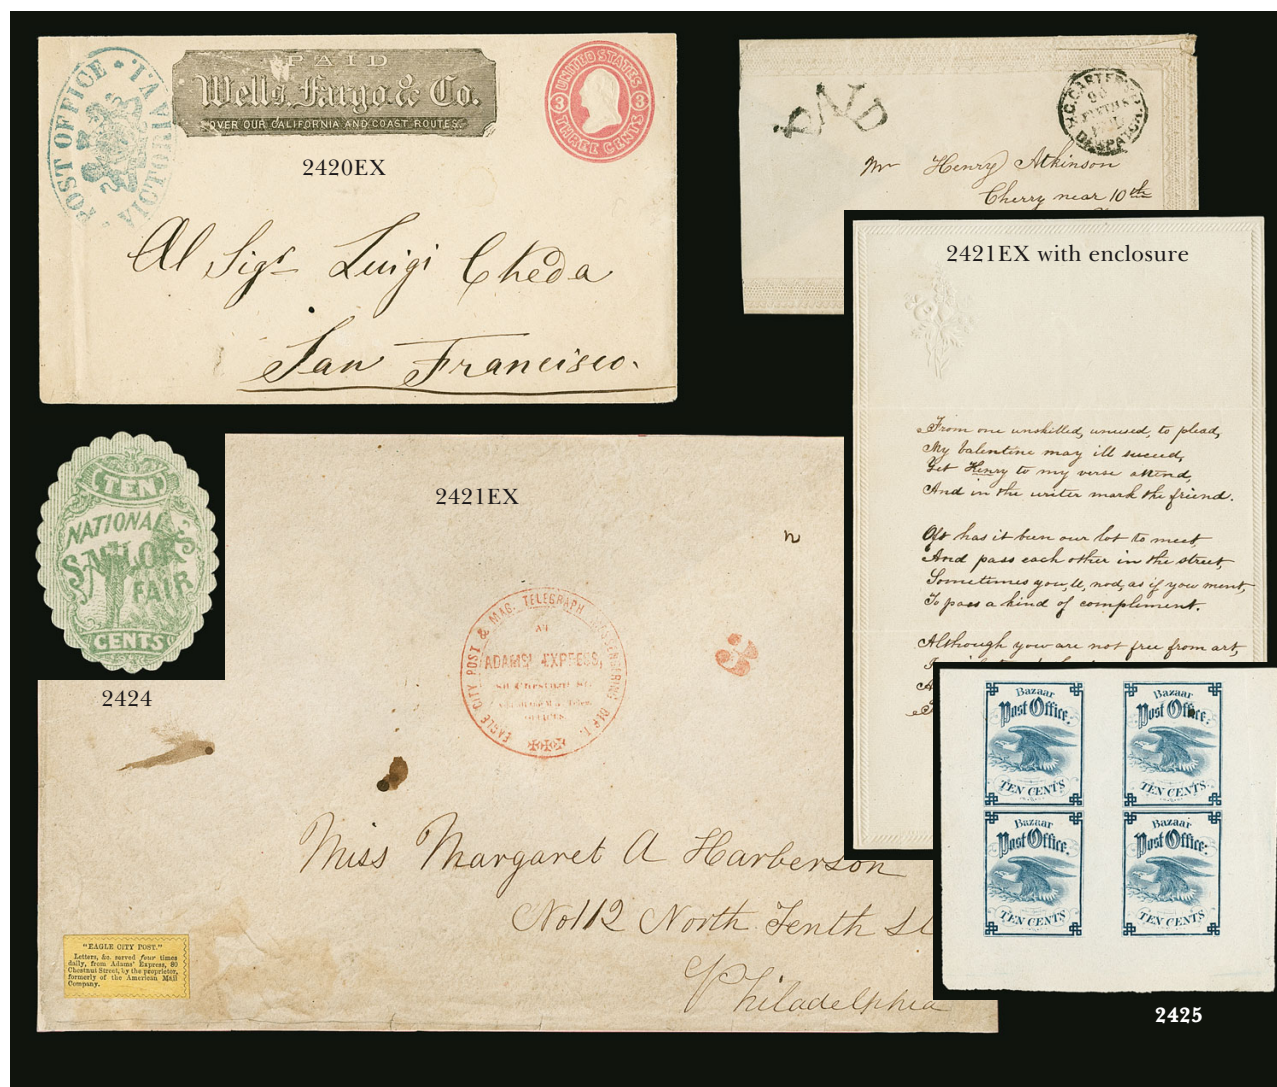 POST OFFICE
VICTORIA V.I.
PAID
Wells, Fargo & Co.
OVER OUR CALIFORNIA AND COAST ROUTES.
UNITED STATES
3 3
THREE CENTS
2420EX
Al Sigr Luigi Cheda
San Francisco.
PAID
DESPATCH
Mr Henry Atkinson
Cherry near 10th
2421EX with enclosure
From one unskilled, unused, to plead,
My Valentine may ill succeed,
Yet Henry to my verse attend,
And in the writer mark the friend.
Oft has it been our lot to meet,
And pass each other in the street,
Sometimes you'll, nod, as if you meant,
To pass a kind of compliment.
Although you are not free from art,
TEN
NATIONAL
SAILORS
FAIR
CENTS
2424
2421EX
EAGLE CITY POST & MAG. TELEGRAPH
DEPT.
AT
ADAMS' EXPRESS,
80 Chestnut St.
Miss Margaret A Harberson
No 112 North Tenth St
Philadelphia
"EAGLE CITY POST."
Letters, &c. served four times
daily, from Adams' Express, 80
Chestnut Street, by the proprietor,
formerly of the American Mail
Company.
Bazaar
Post Office.
TEN CENTS
Bazaar
Post Office.
TEN CENTS
Bazaar
Post Office.
TEN CENTS
Bazaar
Post Office.
TEN CENTS
2425